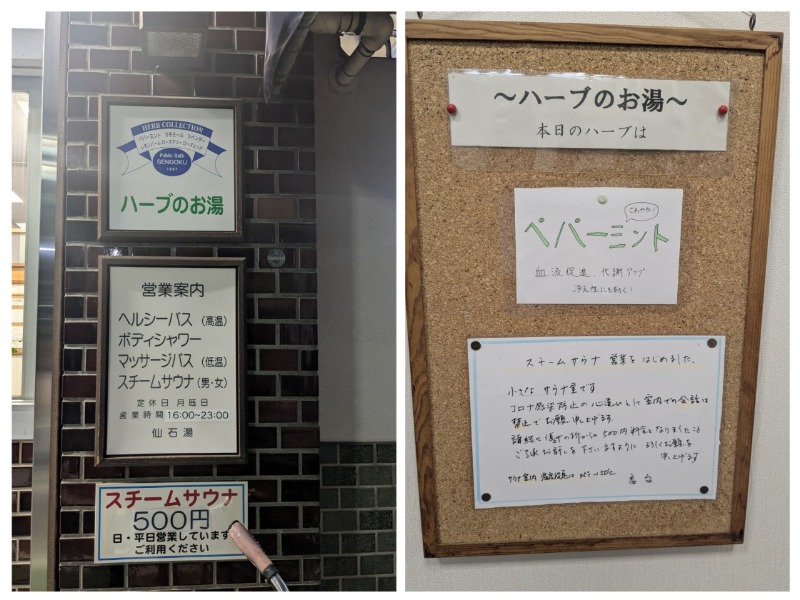 HERB COLLECTION
ペパーミント カモミール ラベンダー
レモンバーム ローズマリー ローズレッド
Public Bath
SENGOKU
ハーブのお湯
営業案内
ヘルシーバス（高温）
ボディシャワー
マッサージバス（低温）
スチームサウナ（男・女）
定休日 月曜日
営業時間 16:00~23:00
仙石湯
スチームサウナ
500円
日・平日営業しています
ご利用ください
～ハーブのお湯～
本日のハーブは
さわやか！
ペパーミント
血流促進、代謝アップ
冷え性にも効く！
スチームサウナ 営業をはじめました、
小さな サウナ室です
コロナ感染防止の心遣いとして室内での会話は
禁止で お願い申し上げます。
500円料金となりましたこと
ご了承お許し下さいますように よろしくお願い
申し上げます
サウナ室内